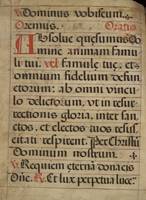 ℣ Dominus vobiscum.
Oremus. Oratio
Absolue quesumus Do
mine animam famu
li tui. vel famule tuę, et o
mnium fidelium defun
ctorum: ab omni vincu
lo delictorum, vt in resur
rectionis gloria, inter san
ctos, et electos tuos resus,
citati respirent. Per Christū
Dominum nostrum.
℣ Requiem eternā dona eis
Dne. ℟ Et lux perpetua luce